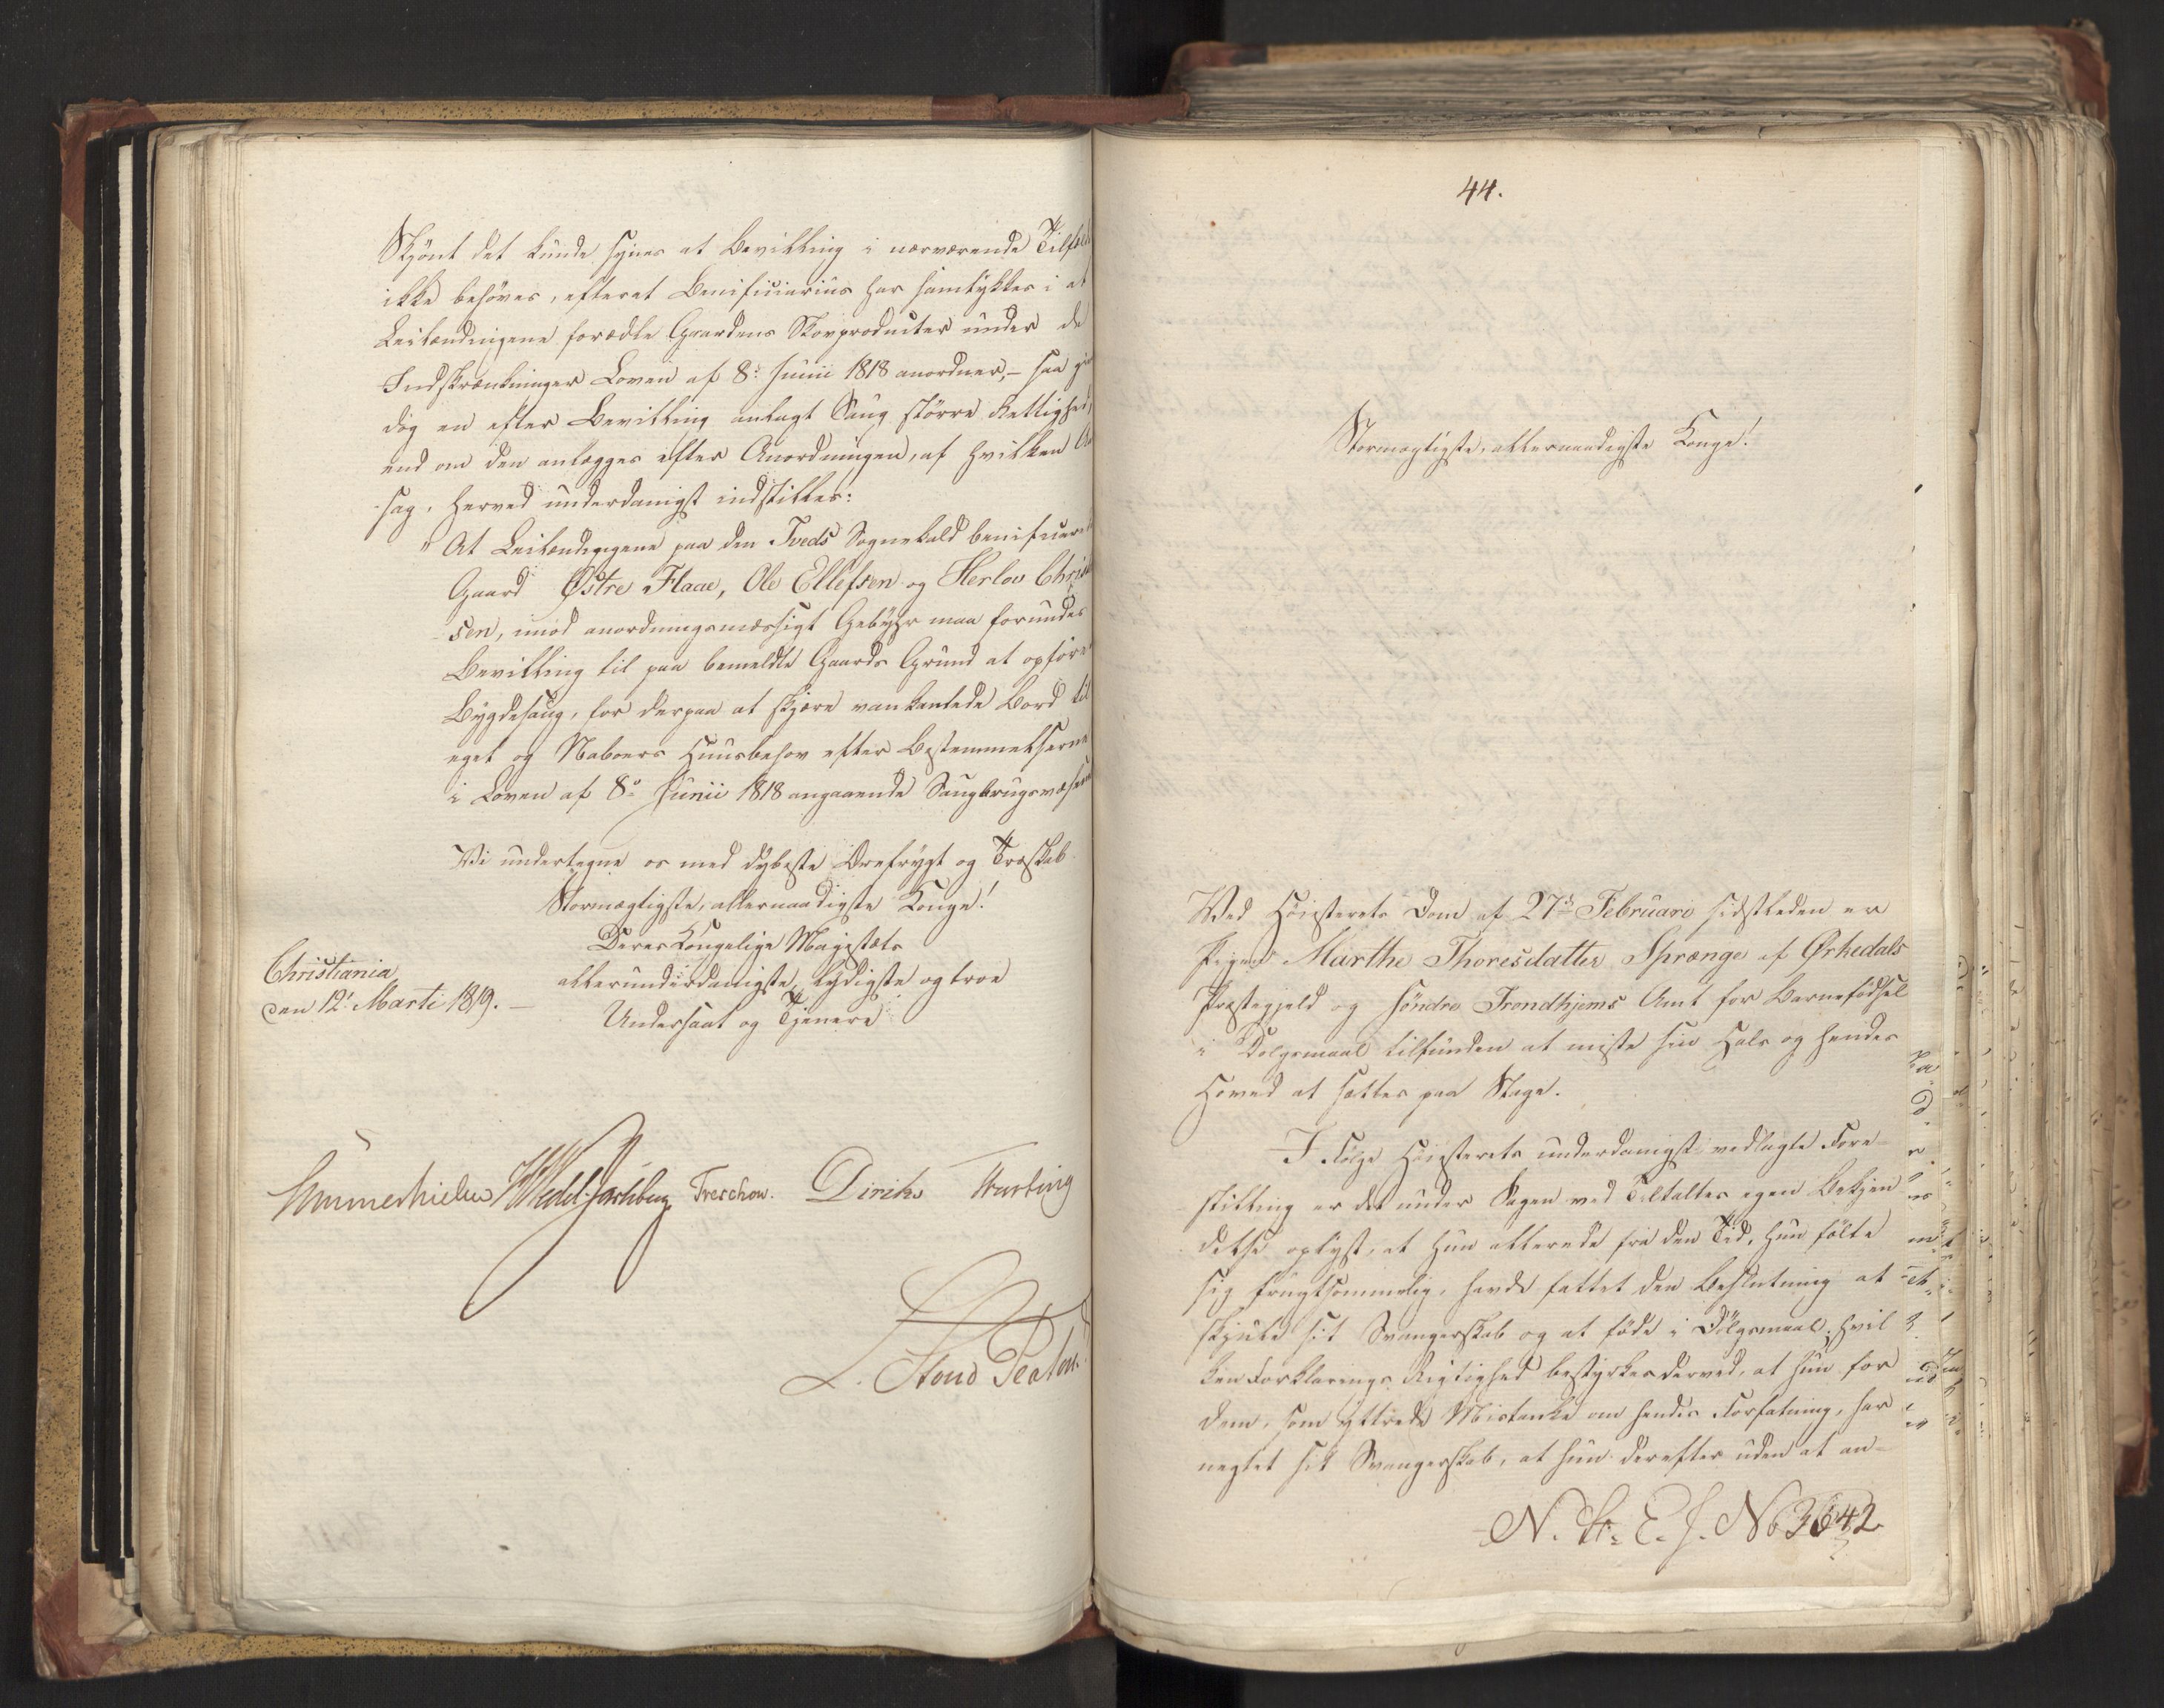 Skjönt det kunde synes at Bevilling i nærværende Tilfælde
ikke behöves, efterat Beneficiarius har samtykkes i at
Leilændingene forædle Gaardens Skovproducter under de
Indskrænkninger Loven af 8: Junii 1818 anordner, - saa giver
dog en efter Bevilling anlagt Saug större Rettighed,
end om den anlægges efter Anordningen, af hvilken Aar
sag, herved underdanigst indstilles:
" At Leilændingene paa den Tveds Sognekald beneficerede
Gaard Østre Flaae, Ole Ellefsen og Herlov Christ
sen, imod anordningsmæssigt Gebyhr maa forundes
Bevilling til paa bemeldte Gaards Grund at opföre
Bygdesaug, for derpaa at skjære vankantede Bord til
eget og Naboers Huusbehov efter Bestemmelserne
i Loven af 8de Junii 1818 angaaende Saugbrugsvæsenet
Vi undertegne os med dybeste Ærefrygt og Troskab
Stormægtigste, allernaadigste Konge!
Deres Kongelige Majestæts
allerunderdanigste, lydigste og troe
Undersaat og Tjenere
Christiania
den 12t Marti 1819. —
Sommerhielm HWedel-Jarlsberg Treschow. Diriks
44.
Stormægtigste, allernaadigste Konge!
Ved Höiesterets Dom af 27de Februari sidstleden er
Pigen Marthe Thoresdatter Sprænge af Ørkedals
Præstegjeld og söndre Trondhjems Amt for Barnefödsel
i Dölgsmaal tilfunden at miste sin Hals og hendes
Hoved at sættes paa Stage.
I Fölge Höiesterets underdanigst vedlagte Fore
stilling er det under Sagen ved Tiltaltes egen Bekjen
delse oplyst, at hun allerede fra den Tid, hun fölte
sig frugtsommelig, havde fattet den Beslutning at
skjule sit Svangerskab og at föde i Dölgsmaal; hvil
ken Forklarings Rigtighed bestyrkes derved, at hun for
dem, som yttrede Mistanke om hendes Forfatning, har
negtet sit Svangerskab, at hun derefter uden at an-
N. St. E. J. No 3642